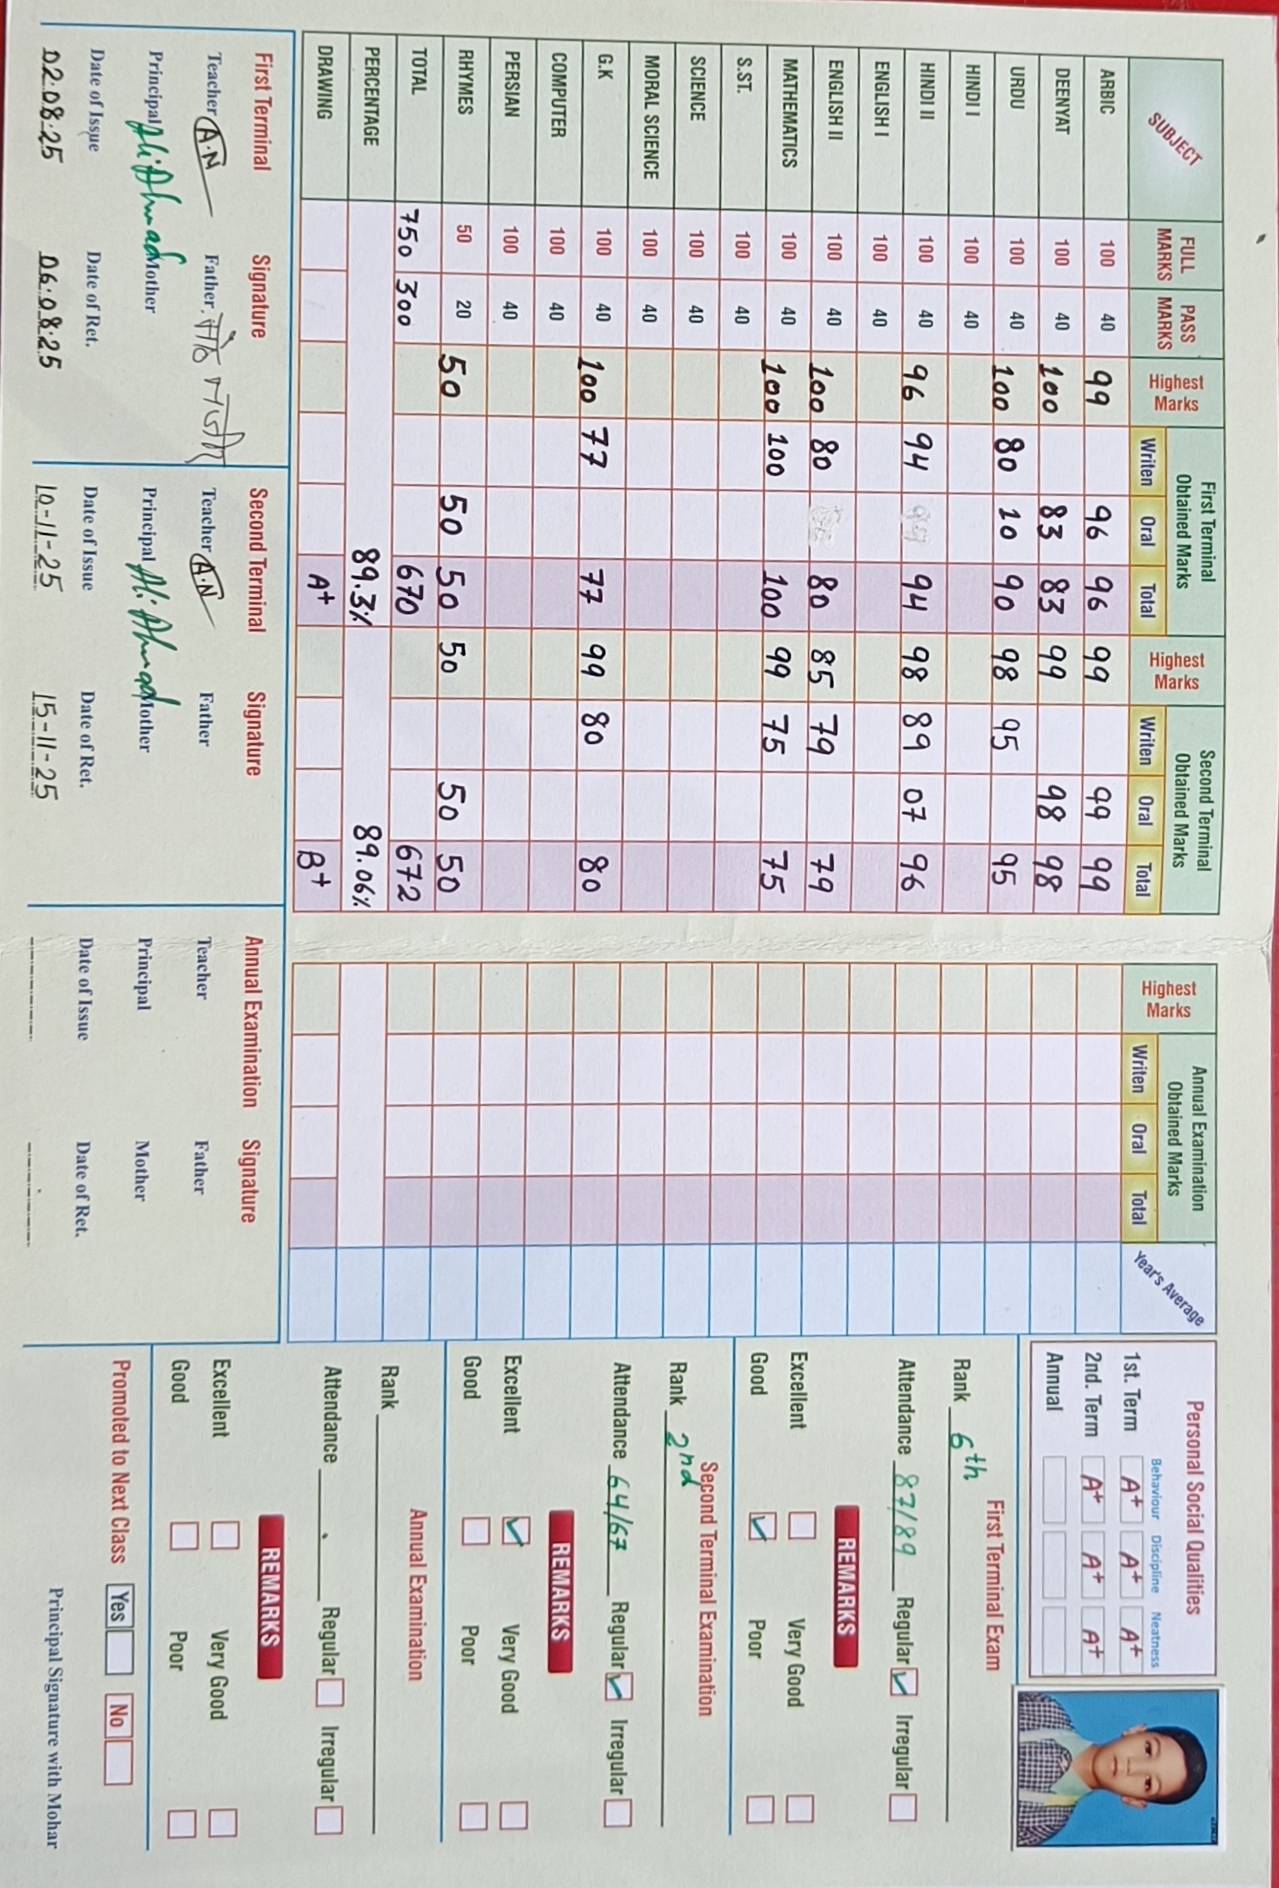 SUBJECT FULL MARKS PASS MARKS Highest Marks First Terminal Obtained Marks Writen Oral Total Highest Marks Second Terminal Obtained Marks Writen Oral Total Highest Marks Annual Examination Obtained Marks Writen Oral Total Year's Average
ARBIC 100 40 99 96 96 99 99 99
DEENYAT 100 40 100 83 83 99 98 98
URDU 100 40 100 80 10 90 98 95 95
HINDI I 100 40
HINDI II 100 40 96 94 94 98 89 07 96
ENGLISH I 100 40
ENGLISH II 100 40 100 80 80 85 79 79
MATHEMATICS 100 40 100 100 100 99 75 75
S.ST. 100 40
SCIENCE 100 40
MORAL SCIENCE 100 40
G.K 100 40 100 77 77 99 80 80
COMPUTER 100 40
PERSIAN 100 40
RHYMES 50 20 50 50 50 50 50 50
TOTAL 750 300 670 672
PERCENTAGE 89.3% 89.06%
DRAWING A+ B+
First Terminal Signature
Teacher A.N Father
Principal Ali Ahmad Mother
Date of Issue Date of Ret.
02.08.25 06.08.25
Second Terminal Signature
Teacher A.N Father
Principal Ali Ahmad Mother
Date of Issue Date of Ret.
10-11-25 15-11-25
Annual Examination Signature
Teacher Father
Principal Mother
Date of Issue Date of Ret.
Personal Social Qualities
Behaviour Discipline Neatness
1st. Term A+ A+ A+
2nd. Term A+ A+ A+
Annual
First Terminal Exam
Rank 6th
Attendance 87/89 Regular Irregular
REMARKS
Excellent Very Good
Good Poor
Second Terminal Examination
Rank 2nd
Attendance 64/67 Regular Irregular
REMARKS
Excellent Very Good
Good Poor
Annual Examination
Rank
Attendance Regular Irregular
REMARKS
Excellent Very Good
Good Poor
Promoted to Next Class Yes No
Principal Signature with Mohar